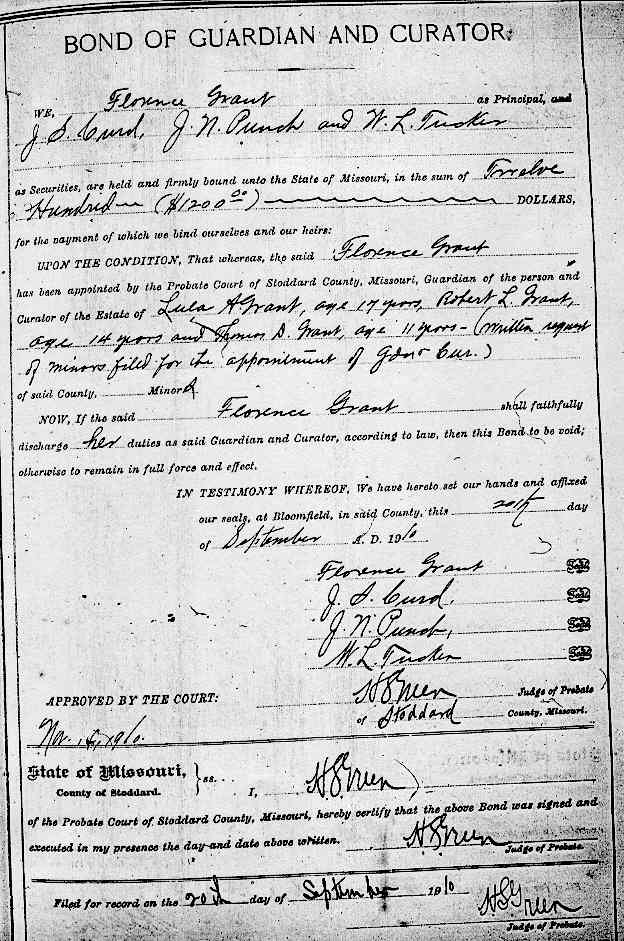 BOND OF GUARDIAN AND CURATOR.
WE, Florence Grant as Principal, and
J. S. Curd, J. N. Punch and W. L. Tucker
as Securities, are held and firmly bound unto the State of Missouri, in the sum of Twelve
Hundred ($1200 00) DOLLARS,
for the payment of which we bind ourselves and our heirs:
UPON THE CONDITION, That whereas, the said Florence Grant
has been appointed by the Probate Court of Stoddard County, Missouri, Guardian of the person and
Curator of the Estate of Lula A Grant, age 17 years, Robert L. Grant,
age 14 years and Thomas D. Grant, age 11 years - (written request
of minors filed for the appointment of Cur.)
of said County, Minors
NOW, If the said Florence Grant shall faithfully
discharge her duties as said Guardian and Curator, according to law, then this Bond to be void;
otherwise to remain in full force and effect.
IN TESTIMONY WHEREOF, We have hereto set our hands and affixed
our seals, at Bloomfield, in said County, this 20th day
of September A. D. 1910
Florence Grant Seal
J. S. Curd. Seal
J. N. Punch, Seal
W. L. Tucker Seal
APPROVED BY THE COURT: Green Judge of Probate
of Stoddard County, Missouri.
Nov. 1910.
State of Missouri, ss.
County of Stoddard. I, Green,
of the Probate Court of Stoddard County, Missouri, hereby certify that the above Bond was signed and
executed in my presence the day and date above written. Green
Judge of Probate.
Filed for record on the 20th day of September 1910 Green
Judge of Probate.